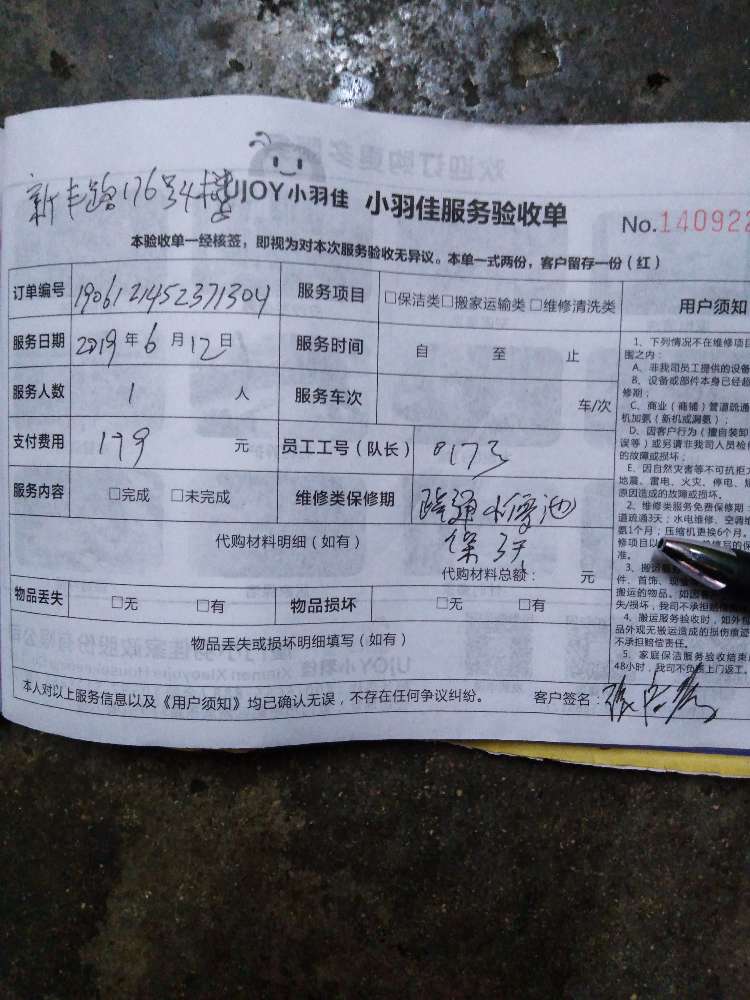 新丰路176号4楼
UJOY小羽佳 小羽佳服务验收单
No.140922
本验收单一经核签，即视为对本次服务验收无异议。本单一式两份，客户留存一份（红）
订单编号 1906121452371304 服务项目 □保洁类□搬家运输类□维修清洗类
服务日期 2019年6月12日 服务时间 自 至 止
服务人数 1 人 服务车次 车/次
支付费用 179 元 员工工号（队长） 8173
服务内容 □完成 □未完成 维修类保修期 疏通水槽池
保3天
代购材料明细（如有）
代购材料总额： 元
物品丢失 □无 □有 物品损坏 □无 □有
物品丢失或损坏明细填写（如有）
本人对以上服务信息以及《用户须知》均已确认无误，不存在任何争议纠纷。 客户签名：
用户须知
1、下列情况不在维修项目
围之内：
A、非我司员工提供的设备
B、设备或部件本身已经超
修期；
C、商业（商铺）管道疏通
机加氨（新机或漏氨）；
D、因客户行为（擅自装卸
误等）或另请非我司人员检修
的故障或损坏；
E、因自然灾害等不可抗拒
地震、雷电、火灾、停电、
原因造成的故障或损坏。
2、维修类服务免费保修期：
道疏通3天；水电维修、空调
氨1个月；压缩机更换6个月。
修项目以 填写的保
准。
3、搬运
件、首饰、现
搬运的物品。如因
失/损坏，我司不承担赔偿
4、搬运服务验收时，如外包
品外观无搬运造成的损伤痕迹
不承担赔偿责任。
5、家庭保洁服务验收结束
48小时，我司不负责上门返工。